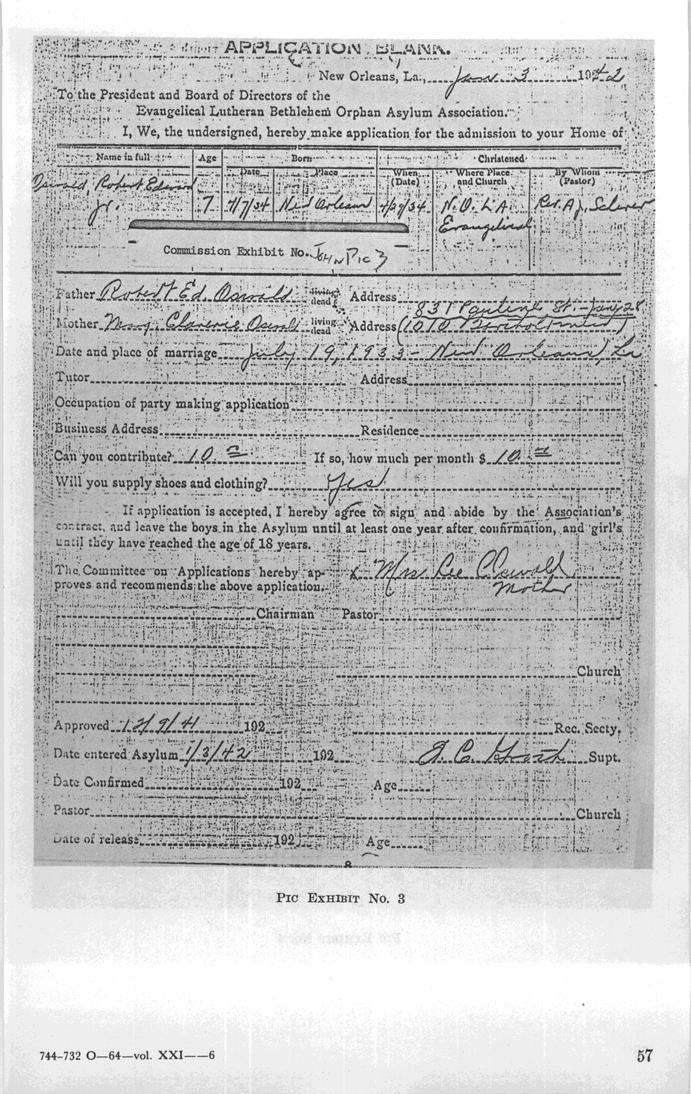 APPLICATION BLANK.
New Orleans, La., Jan 3 1942
To the President and Board of Directors of the
Evangelical Lutheran Bethlehem Orphan Asylum Association.
I, We, the undersigned, hereby make application for the admission to your Home of
Name in full Age Born Christened
Date Place When (Date) Where Place and Church By Whom (Pastor)
Oswald, Robert Edward Jr. 7 4/7/34 New Orleans N. O. L A. Evangelical Rev. A. J. Scherer
Commission Exhibit No. John Pic 3
Father Robert Ed. Oswald living dead Address 831 Pauline St.
Mother living dead Address (1010
Date and place of marriage July 19, 1933 - New Orleans, La
Tutor Address
Occupation of party making application
Business Address Residence
Can you contribute? 10 If so, how much per month $ 10
Will you supply shoes and clothing? Yes
If application is accepted, I hereby agree to sign and abide by the Association's
contract, and leave the boys in the Asylum until at least one year after confirmation, and girl's
until they have reached the age of 18 years.
The Committee on Applications hereby ap- x Mrs Lee C. Oswald
proves and recommends the above application. Mother
Chairman Pastor
Church
Approved 12/9/41 192 Rec. Secty.
Date entered Asylum 1/3/42 192 Supt.
Date Confirmed 192 Age
Pastor Church
Date of release 192 Age
8
PIC EXHIBIT No. 3
744-732 O—64—vol. XXI——6 57